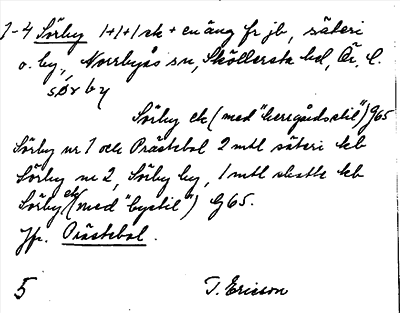 1-4 Sörby 1+1+1 sk + en äng fr jb, säteri
o. by, Norrbyås sn, Sköllersta hd, Ör. l.
sø̨rby
Sörby ek (med "herrgårdsstil") G65
Sörby nr 1 och Prästebol 2 mtl säteri kb
Sörby nr 2, Sörby by, 1 mtl skatte kb
Sörby ek (med "bystil") G65.
Jfr. Prästebol.
5 T. Ericson